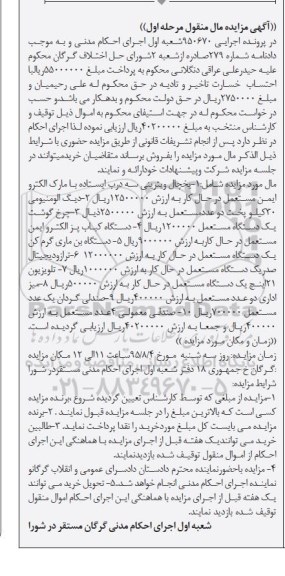 ((آگهی مزایده مال منقول مرحله اول))
در پرونده اجرایی ۹۵۰۶۷۰شعبه اول اجرای احکام مدنی و به موجب
دادنامه شماره ۲۷۹صادره ازشعبه ۲شورای حل اختلاف گرگان محکوم
علیه حیدرعلی عراقی دنگلانی محکوم به پرداخت مبلغ ۵۵۰۰۰۰۰۰ریالبا
احتساب خسارت تاخیر و تادیه در حق محکوم له علی رحیمیان و
مبلغ ۲۷۵۰۰۰۰ریال در حق دولت محکوم و بدهکار می باشدو حسب
در خواست محکوم له در جهت استیفای محکوم به اموال ذیل توقیف و
کارشناس منتخب به مبلغ ۴۰۲۰۰۰۰۰ریال ارزیابی نموده لذا اجرای احکام
در نظر دارد پس از انجام تشریفات قانونی از طریق مزایده حضوری با شرایط
ذیل الذکر مال مورد مزایده را بفروش برساند متقاضیان خریدمیتوانند در
جلسه مزایده شرکت وپیشنهادات خودارائه و نمایند.
مال مورد مزایده شامل:۱-یخچال ویترینی سه درب ایستاده با مارک الکترو
ایمن مستعمل در حال کار به ارزش ۱۲۵۰۰۰۰۰ ریال ۲-دیگ آلومنیومی
۳۰کیلو پخت دو عددمستعمل به ارزش ۲۵۰۰۰۰۰ریال ۳-چرخ گوشت
یک دستگاه مستعمل ۱۲۰۰۰۰۰۰ریال ۴-دستگاه کباب پز الکترو ایمن
مستعمل در حال کاربه ارزش ۹۰۰۰۰۰۰ریال ۵- دستگاه بن ماری گرم کن
یک دستگاه مستعمل در حال کار به ارزش ۱۲۰۰۰۰۰ ۶-ترازودیجیتال
صدریک دستگاه مستعمل در حال کار به ارزش ۱۰۰۰۰۰۰ریال ۷- تلویزیون
۲۱اینچ یک دستگاه مستعمل در حال کار به ارزش ۵۰۰۰۰۰ریال ۸-میز
اداری دو عدد مستعمل به ارزش ۴۰۰۰۰۰ریال ۹-صندلی گردان یک عدد
مستعمل ۷۰۰۰۰۰ریال ۱۰- صندلی معمولی ۴عدد مستعمل به ارزش
۴۰۰۰۰۰ریال و جمعا به ارزش ۴۰۲۰۰۰۰۰ ریال ارزیابی گردیده است.
((زمان و مکان مورد مزایده ))
زمان مزایده: روز سه شنبه مورخ ۹۵/۸/۴ساعت ۱۱الی ۱۲ مکان مزایده
:گرگان خ جمهوری ۱۸ دفتر شعبه اول اجرای احکام مدنی مستقردر شورا
شرایط مزایده:
۱-مزایده از مبلغی که توسط کارشناس تعیین گردیده شروع ،برنده مزایده
کسی است که بالاترین مبلغ را در جلسه مزایده قبول نمایند . ۲-برنده
مزایده می بایست کل مبلغ موردخرید را نقدا پرداخت نماید. ۳-طالبین
خرید می توانندیک هفته قبل از اجرای مزایده با هماهنگی این اجرای
احکام از اموال منقول توقیف شده بازدیدنمایند.
۴- مزایده باحضورنماینده محترم دادستان دادسرای عمومی و انقلاب گرگانو
نماینده اجرای احکام مدنی انجام خواهد شد.۵- تحویل خرید می توانند
یک هفته قبل از اجرای مزایده با هماهنگی این اجرای احکام اموال منقول
توقیف شده بازدید نمایند.
شعبه اول اجرای احکام مدنی گرگان مستقر در شورا
۰۲۱-۸۸۳۴۹۶۷۰-۵